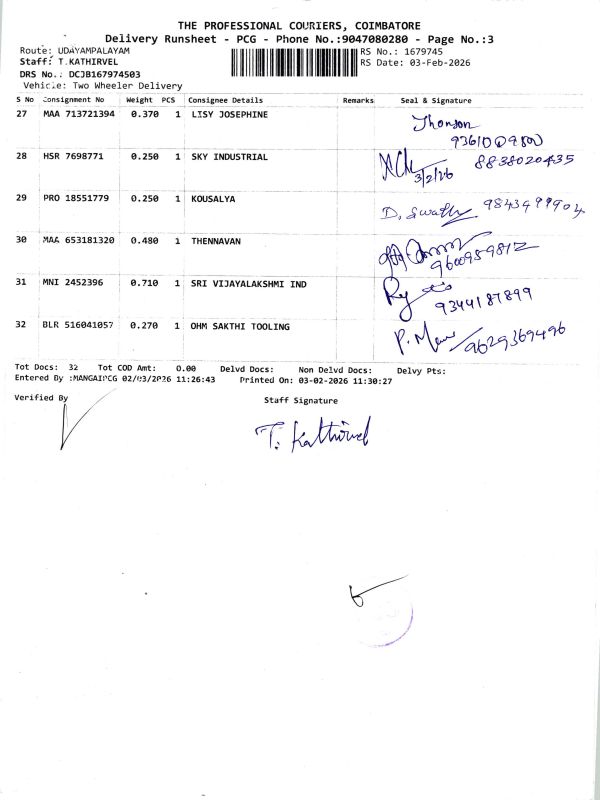 THE PROFESSIONAL COURIERS, COIMBATORE
Delivery Runsheet - PCG - Phone No.:9047080280 - Page No.:3
Route: UDAYAMPALAYAM RS No.: 1679745
Staff: T.KATHIRVEL RS Date: 03-Feb-2026
DRS No.: DCJB167974503
Vehicle: Two Wheeler Delivery
S No Consignment No Weight PCS Consignee Details Remarks Seal & Signature
27 MAA 713721394 0.370 1 LISY JOSEPHINE
Thomson
28 HSR 7698771 0.250 1 SKY INDUSTRIAL 8838020435
3/2/26
29 PRO 18551779 0.250 1 KOUSALYA
D. Swathy
30 MAA 653181320 0.480 1 THENNAVAN
9600959812
31 MNI 2452396 0.710 1 SRI VIJAYALAKSHMI IND
9344187899
32 BLR 516041057 0.270 1 OHM SAKTHI TOOLING
9629369496
Tot Docs: 32 Tot COD Amt: 0.00 Delvd Docs: Non Delvd Docs: Delvy Pts:
Entered By :MANGAIPCG 02/03/2026 11:26:43 Printed On: 03-02-2026 11:30:27
Verified By Staff Signature
T. Kathirvel